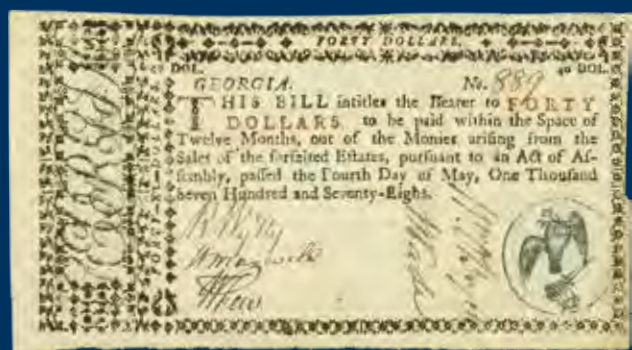 FORTY DOLLARS.
DOL. 40 DOL.
GEORGIA. No. 889
THIS BILL intitles the Bearer to FORTY
DOLLARS to be paid within the Space of
Twelve Months, out of the Monies arising from the
Sales of the forfeited Estates, pursuant to an Act of As-
sembly, passed the Fourth Day of May, One Thousand
Seven Hundred and Seventy-Eight.
FORTY DOLLARS
GEORGIA